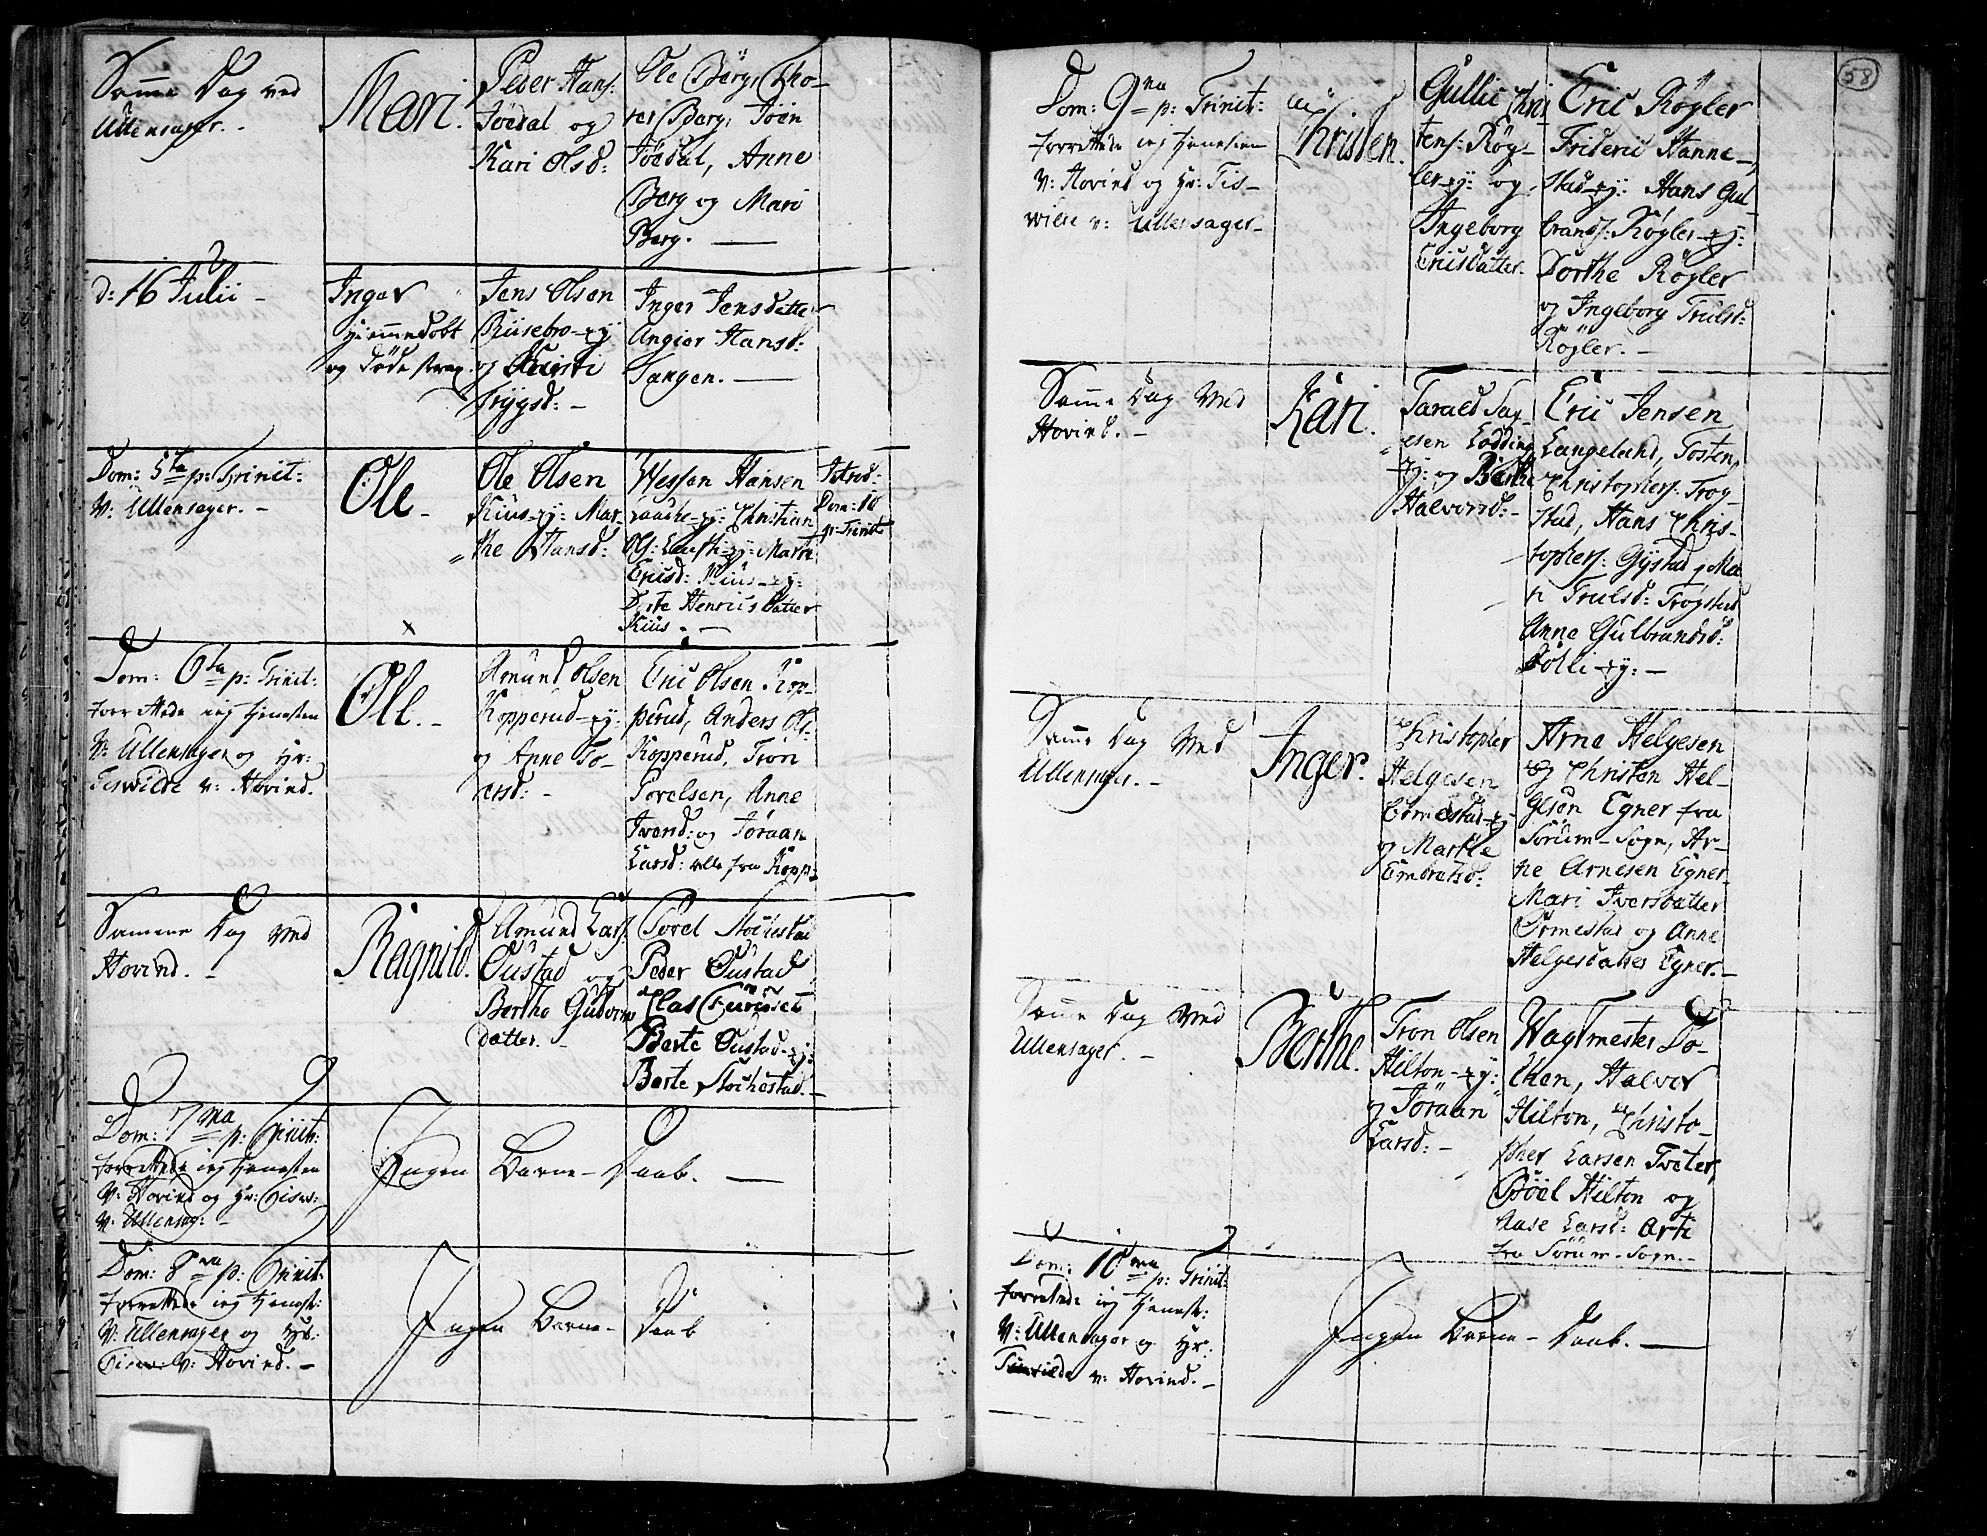 Samme Dag ved
Ullensager. -
Mari.
Peder Hans:
Jødal og
Kari Olsd:
Ole Berg, Tho-
rer Berg, Joen
Jødal, Anne
Berg og Mari
Berg. -
d: 16 Julii -
Inger
hiemmedøbt
og døde strax.
Jens Olsen
Riisebro-ey
og Kirsti
Trygsd: -
Inger Jensdatter
Angier Hansd:
Tangen. -
Dom: 5ta p: Trinit:
V: Ullensager. -
Ole -
Ole Olsen
Kiius-ey: Mar-
the Hansd:
Hansen
-ey: Christian
Ols: -ey: Marte
Ericsd: Kiius-ey:
Henricsdatter
Kiius. -
Introd:
Dom: 10
p: Trinit:
Dom: 6ta p: Trinit:
forrettede ieg tienesten
V: Ullensager og Hr:
Tiswilde v: Hovind.
Ole. -
Amund Olsen
Kopperud-ey:
og Anne To-
resd: -
Eric Olsen Kop-
perud, Anders Ol:
Kopperud, Tron
Povelsen, Anne
Iversd: og Joraan
Larsd: alle fra Kopp:
Samme Dag ved
Hovind. -
Ragnild.
Amund Lars:
Oustad og
Berthe Gudvors
datter. -
Povel Stochestad
Peder Oustad
Clas Furuset
Berte Oustad-ey:
Berte Stochestad. -
Dom: 7ma p: Trinit:
forrettede ieg tienesten
V: Hovind og Hr: Tisw:
V: Ullensag: -
Ingen Barne-Daab. -
Dom: 8va p: Trinit:
forrettede ieg tienest:
V: Ullensager og Hr:
Tisw: V: Hovind. -
Ingen Barne-Daab
58
Dom: 9na p: Trinit:
forrettede ieg tienesten
V: Hovind og Hr: Tis-
wilde v: Ullensager-
Christen.
Gullic Chris
tens: Røg-
ler-ey: og
Ingeborg
Ericsdatter
Eric Røgler
Frideric Hanne-
stad-ey: Hans Gul-
brands: Røgler-ey:
Dorthe Røgler
og Ingeborg Trulsd:
Røgler. -
Samme Dag ved
Hovind. -
Kari.
Tarald Jag-
esen Lodding
ey: og Berthe
Halvorsd: -
Eric Jensen
Langeland, Tosten
Christophers: Trog-
stad, Hans Chris-
tophers: Gystad, Ma-
ri Trulsd: Trogstad
Anne Gulbrandsd:
Dølli-ey: -
Samme Dag ved
Ullensager. -
Inger.
Christopher
Helgesen
Ormestad-ey
og Marthe
Embretsd:
Arne Helgesen
og Christen Hel-
gesen Egner fra
Sørum-Sogn, Ar-
ne Arnesen Egner
Mari Iversdatter
Ormestad og Anne
Helgesdatter Egner. -
Samme Dag ved
Ullensager. -
Berthe.
Tron Olsen
Hilton-ey:
og Joraan
Larsd: -
Wagtmester Do-
Hilton, Christo-
pher Larsen Tveter,
Bøel Hilton og
Aase Larsd: Arti
fra Sørum-Sogn. -
Dom: 10ma p: Trinit:
forrettede ieg tienest:
V: Ullensager og Hr:
Tiswilde v: Hovind. -
Ingen Barne-Daab. -